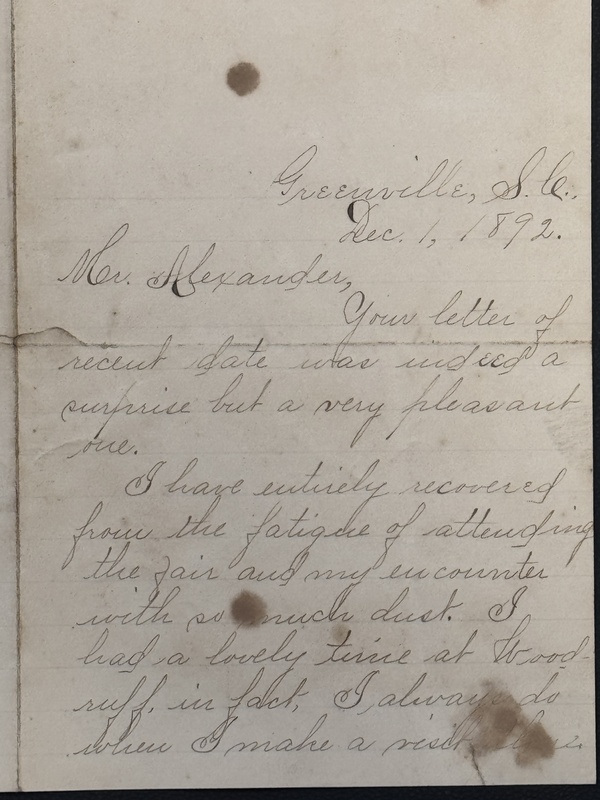 Greenville, S.C.,
Dec. 1, 1892.
Mr. Alexander,
Your letter of
recent date was indeed a
surprise but a very pleasant
one.
I have entirely recovered
from the fatigue of attending
the fair and my encounter
with so much dust. I
had a lovely time at Wood-
ruff, in fact, I always do
when I make a visit there.